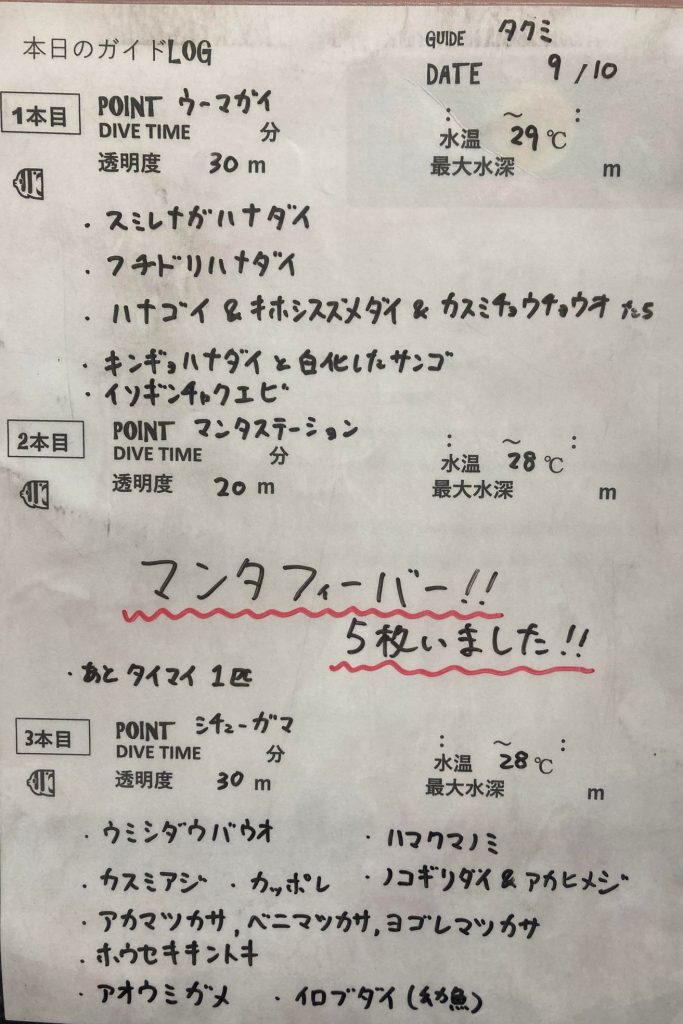 本日のガイドLOG
GUIDE タクミ
DATE 9/10
1本目 POINT ウーマガイ
DIVE TIME 分 : ～ :
水温 29℃
透明度 30 m 最大水深 m
・スミレナガハナダイ
・フチドリハナダイ
・ハナゴイ & キホシスズメダイ & カスミチョウチョウオ たち
・キンギョハナダイと白化したサンゴ
・イソギンチャクエビ
2本目 POINT マンタステーション
DIVE TIME 分 : ～ :
水温 28℃
透明度 20 m 最大水深 m
マンタフィーバー!!
5枚いました!!
・あと タイマイ 1匹
3本目 POINT シチューガマ
DIVE TIME 分 : ～ :
水温 28℃
透明度 30 m 最大水深 m
・ウミシダウバウオ ・ハマクマノミ
・カスミアジ ・カッポレ ・ノコギリダイ & アカヒメジ
・アカマツカサ, ベニマツカサ, ヨゴレマツカサ
・ホウセキキントキ
・アオウミガメ ・イロブダイ (幼魚)